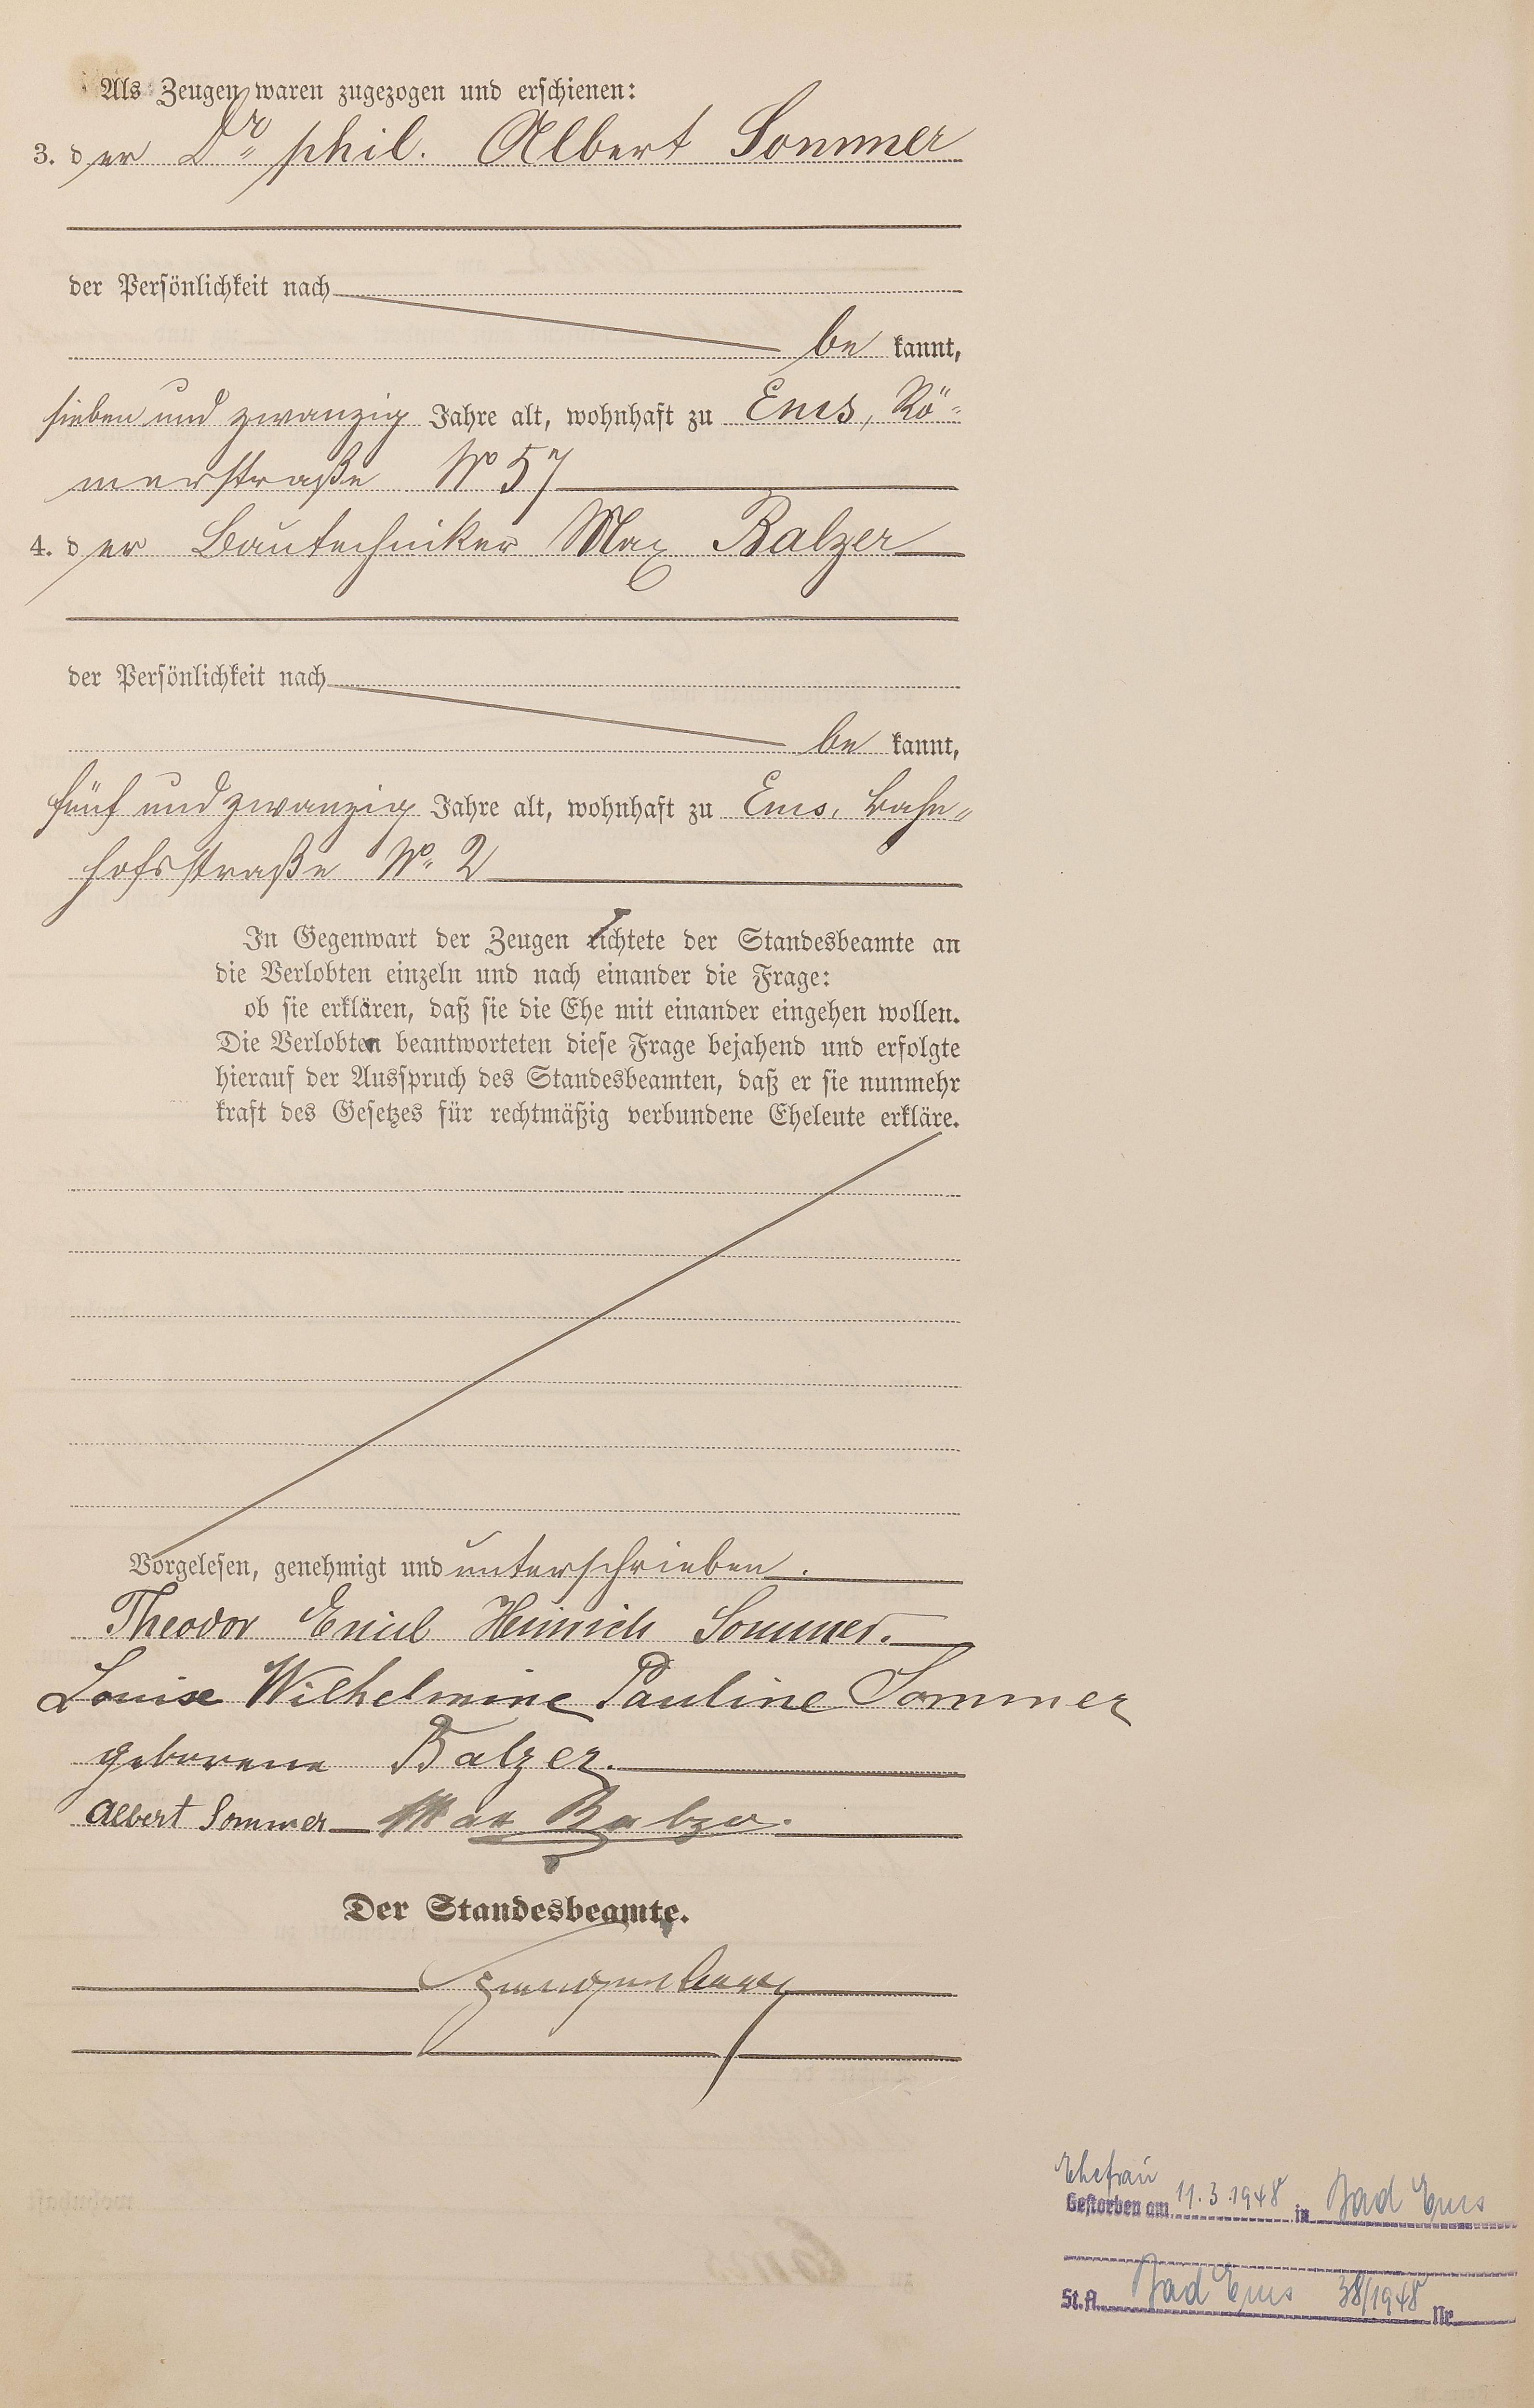 Als Zeugen waren zugezogen und erschienen:
3. der Dr. phil. Albert Sommer
der Persönlichkeit nach
be kannt,
sieben und zwanzig Jahre alt, wohnhaft zu Ems, Rö-
merstraße No 57
4. der Bautechniker Max Balzer
der Persönlichkeit nach
be kannt,
fünf und zwanzig Jahre alt, wohnhaft zu Ems, Bahn-
hofsstraße No. 2
In Gegenwart der Zeugen richtete der Standesbeamte an
die Verlobten einzeln und nach einander die Frage:
ob sie erklären, daß sie die Ehe mit einander eingehen wollen.
Die Verlobten beantworteten diese Frage bejahend und erfolgte
hierauf der Ausspruch des Standesbeamten, daß er sie nunmehr
kraft des Gesetzes für rechtmäßig verbundene Eheleute erkläre.
Vorgelesen, genehmigt und unterschrieben.
Theodor Emil Heinrich Sommer.
Louise Wilhelmine Pauline Sommer
geborene Balzer.
Albert Sommer Max Balzer.
Der Standesbeamte.
Ehefrau
Gestorben am 11.3.1948 in Bad Ems
St.A. Bad Ems 38/1948 Nr.